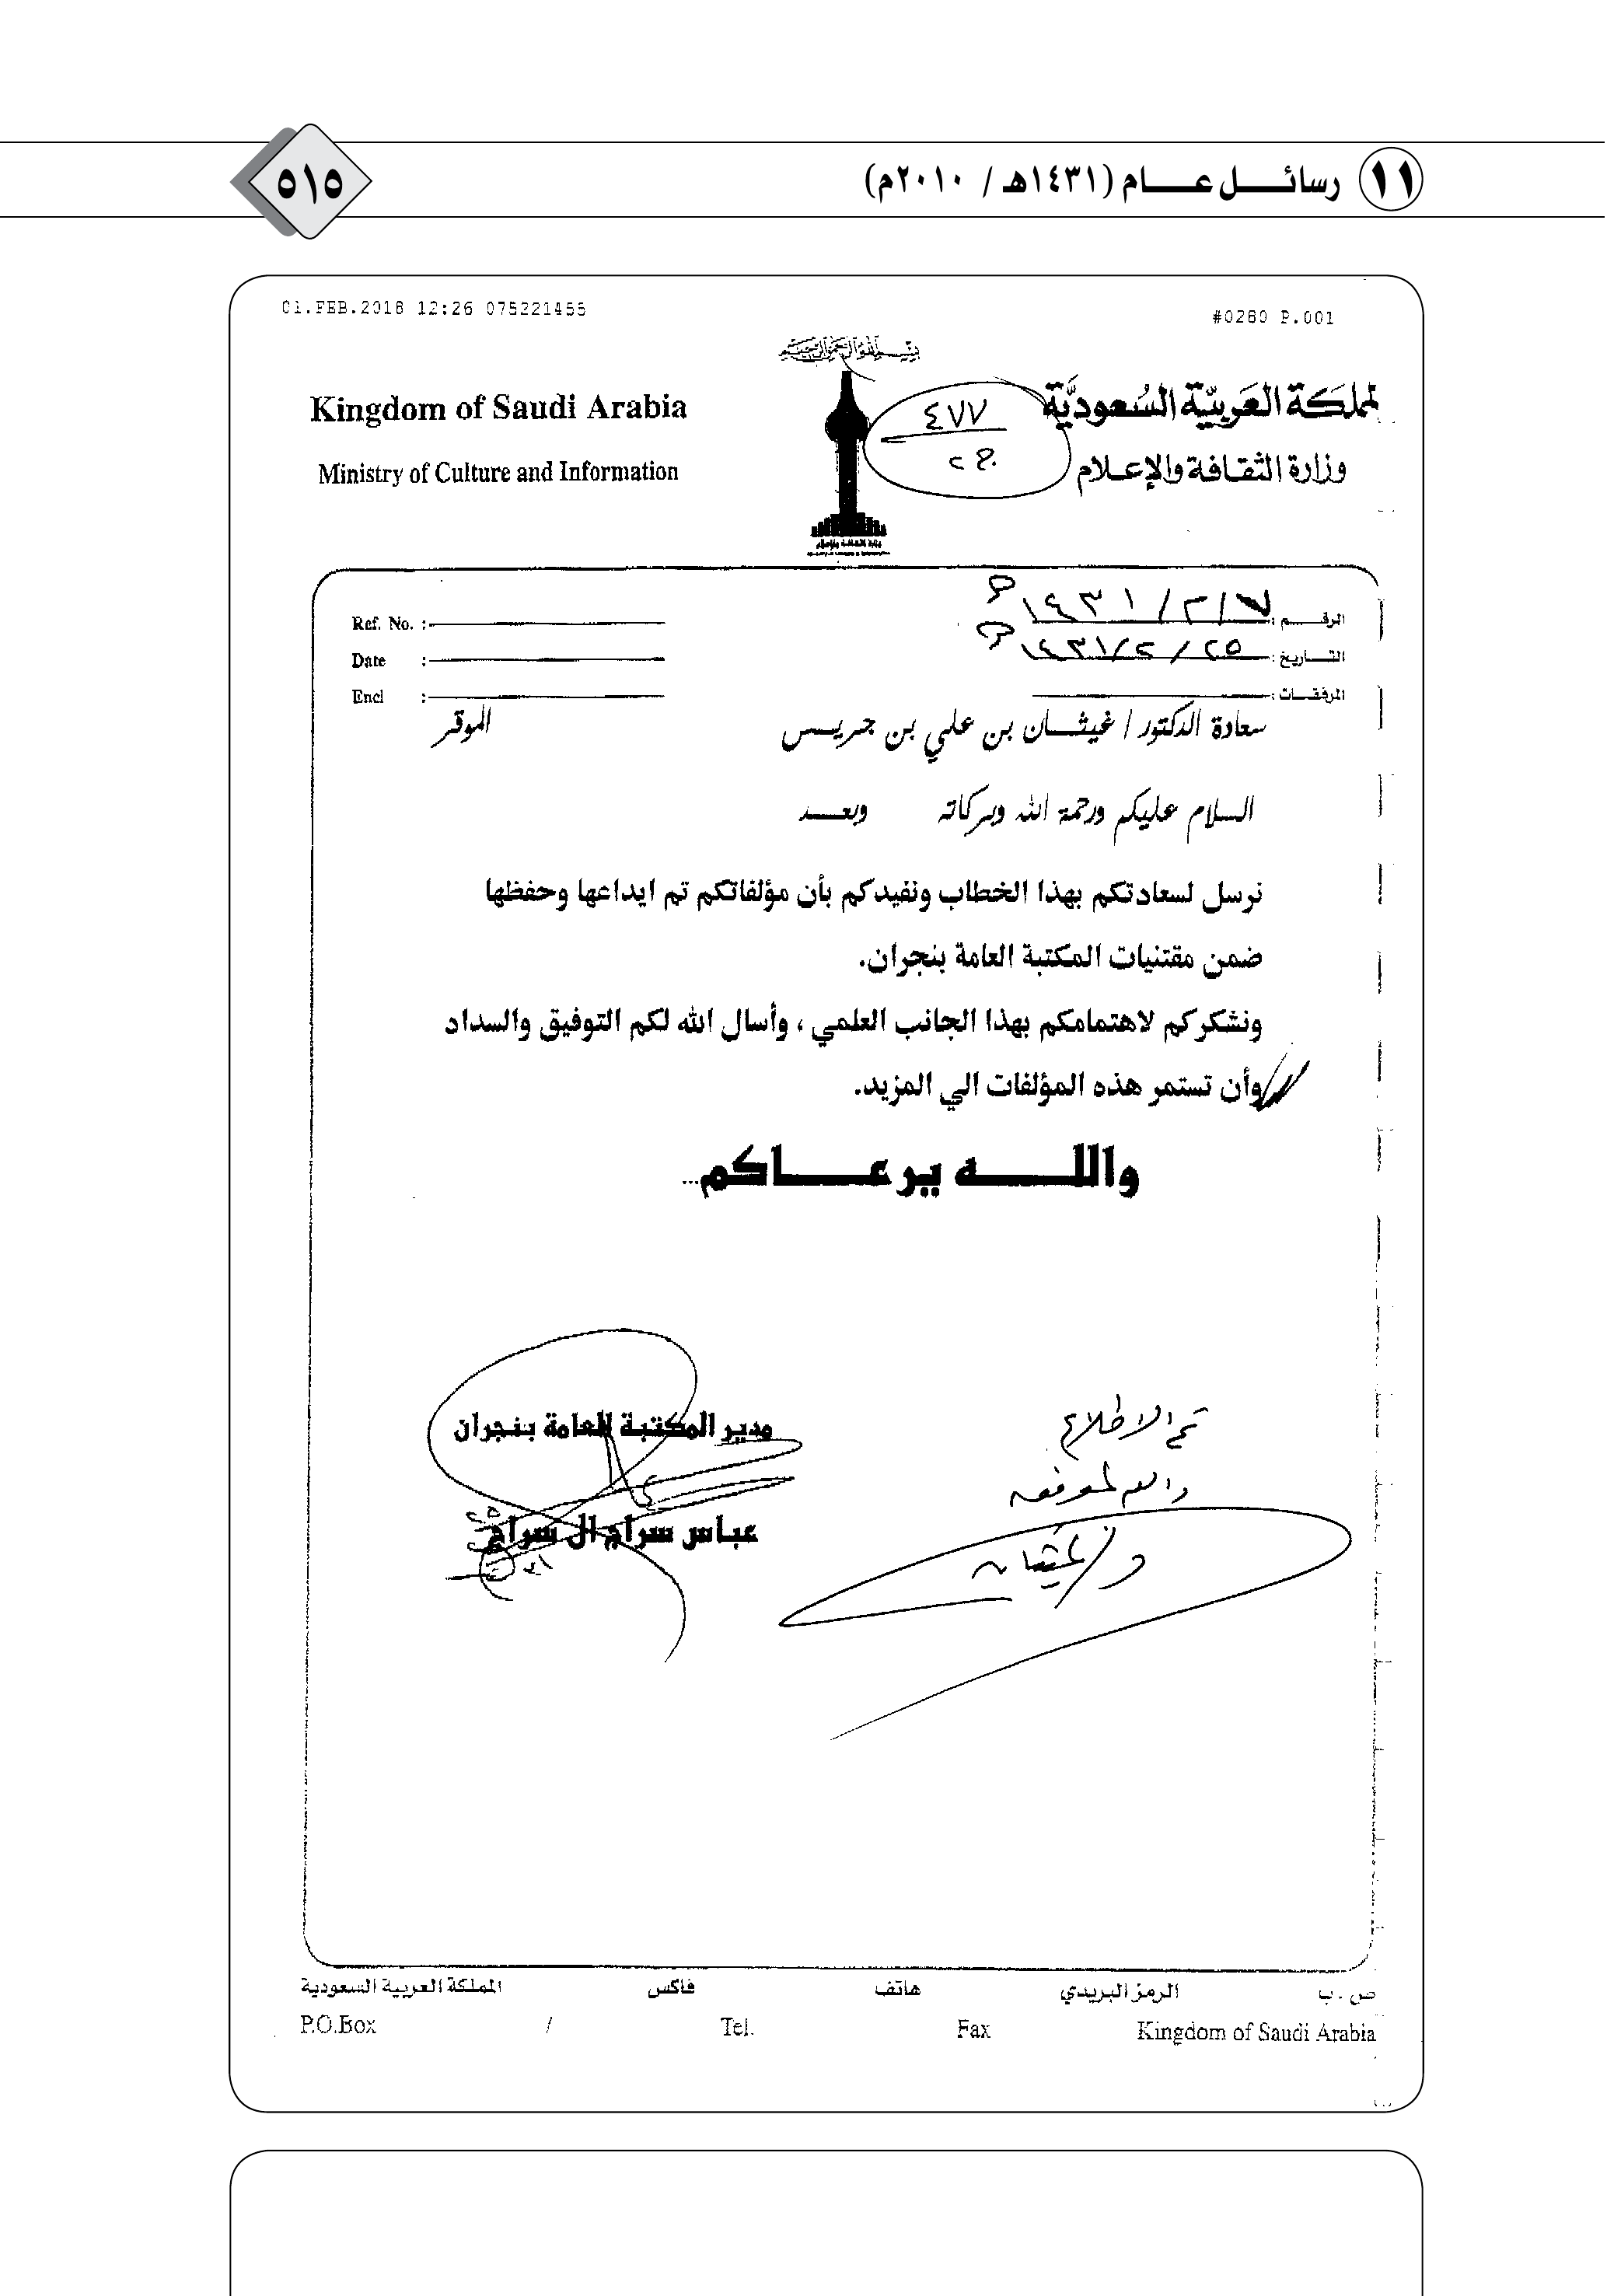 ١١ رسائـــل عــــام (١٤٣١هـ / ٢٠١٠م)
٥١٥
01.FEB.2018 12:26 075221455
#0280 P.001
بسم الله الرحمن الرحيم
Kingdom of Saudi Arabia
Ministry of Culture and Information
لمملكة العربية السعودية
وزارة الثقافة والإعلام
٤٧٧
ج ٢
Ref. No. :
Date :
Encl :
الرقـــم :
التــاريخ : ٢٥ / ٢ / ١٤٣١ هـ
المرفقــات :
سعادة الدكتور / غيثــان بن علي بن جريــس الموقر
السلام عليكم ورحمة الله وبركاته وبعــد
نرسل لسعادتكم بهذا الخطاب ونفيدكم بأن مؤلفاتكم تم ايداعها وحفظها
ضمن مقتنيات المكتبة العامة بنجران.
ونشكركم لاهتمامكم بهذا الجانب العلمي ، وأسال الله لكم التوفيق والسداد
وأن تستمر هذه المؤلفات الي المزيد.
واللـــــه يرعـــــاكم...
مدير المكتبة العامة بنجران
عباس سراج ال سراج
تم الاطلاع
والله الموفق
د / غيثان
ص . ب الرمز البريدي هاتف فاكس المملكة العربية السعودية
P.O.Box / Tel. Fax Kingdom of Saudi Arabia